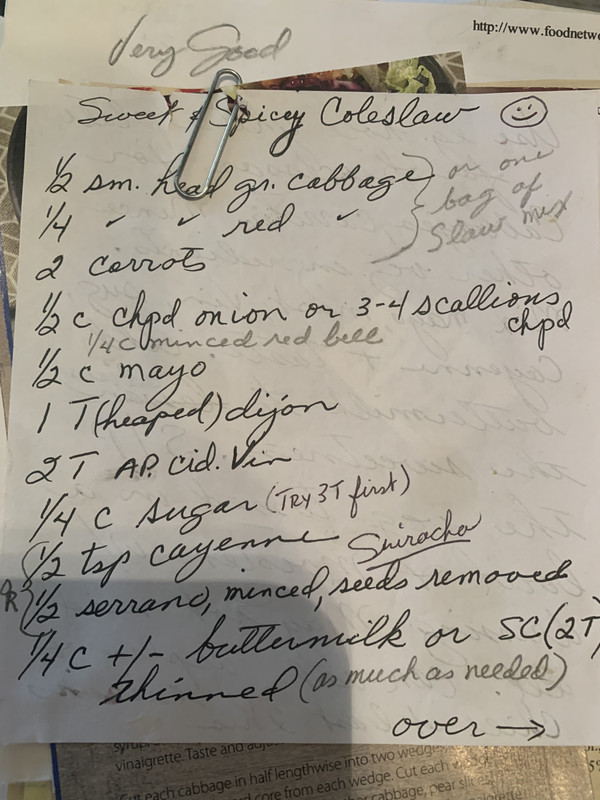 http://www.foodnetwo
Very Good
Sweet & Spicy Coleslaw
1/2 sm. head gr. cabbage } or one
1/4 ✓ ✓ red ✓ bag of
Slaw mix
2 carrots
1/2 c chpd onion or 3-4 scallions
chpd
1/4 c minced red bell
1/2 c mayo
1 T (heaped) dijon
2 T AP. Cid. Vin
1/4 c sugar (TRY 3T first)
1/2 tsp cayenne Sriracha
OR 1/2 serrano, minced, seeds removed
1/4 c +/- buttermilk or SC (2T)
thinned (as much as needed)
over →
vinaigrette. Taste and
Cut each cabbage in half lengthwise into two wedge
core from each wedge. Cut each
cabbage, pear